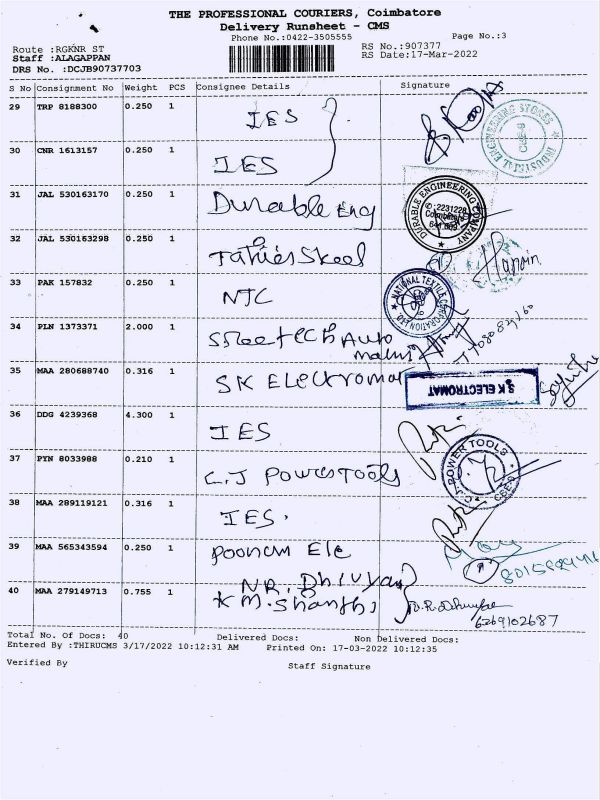 THE PROFESSIONAL COURIERS, Coimbatore
Delivery Runsheet - CMS
Phone No.:0422-3505555 Page No.:3
Route :RGKNR ST RS No.:907377
Staff :ALAGAPPAN RS Date:17-Mar-2022
DRS No. :DCJB90737703
S No Consignment No Weight PCS Consignee Details Signature
29 TRP 8188300 0.250 1 IES
INDUSTRIAL ENGINEERING STORES
30 CNR 1613157 0.250 1 IES
31 JAL 530163170 0.250 1 Durable Eng
DURABLE ENGINEERING COMPANY 2231228 Coimbatore
32 JAL 530163298 0.250 1
33 PAK 157832 0.250 1 NTC
NATIONAL TEXTILE CORPORATION LTD.
34 PLN 1373371 2.000 1 Auto
35 MAA 280688740 0.316 1 SK Electromat
S K ELECTROMAT
36 DDG 4239368 4.300 1 IES
37 PYN 8033988 0.210 1 C.J Powertools
C.J. POWER TOOLS CBE-9
38 MAA 289119121 0.316 1 IES.
39 MAA 565343594 0.250 1 Poonam Ele
40 MAA 279149713 0.755 1 N.R. Dhivya
K M. Shanthi
6369102687
Total No. Of Docs: 40 Delivered Docs: Non Delivered Docs:
Entered By :THIRUCMS 3/17/2022 10:12:31 AM Printed On: 17-03-2022 10:12:35
Verified By Staff Signature